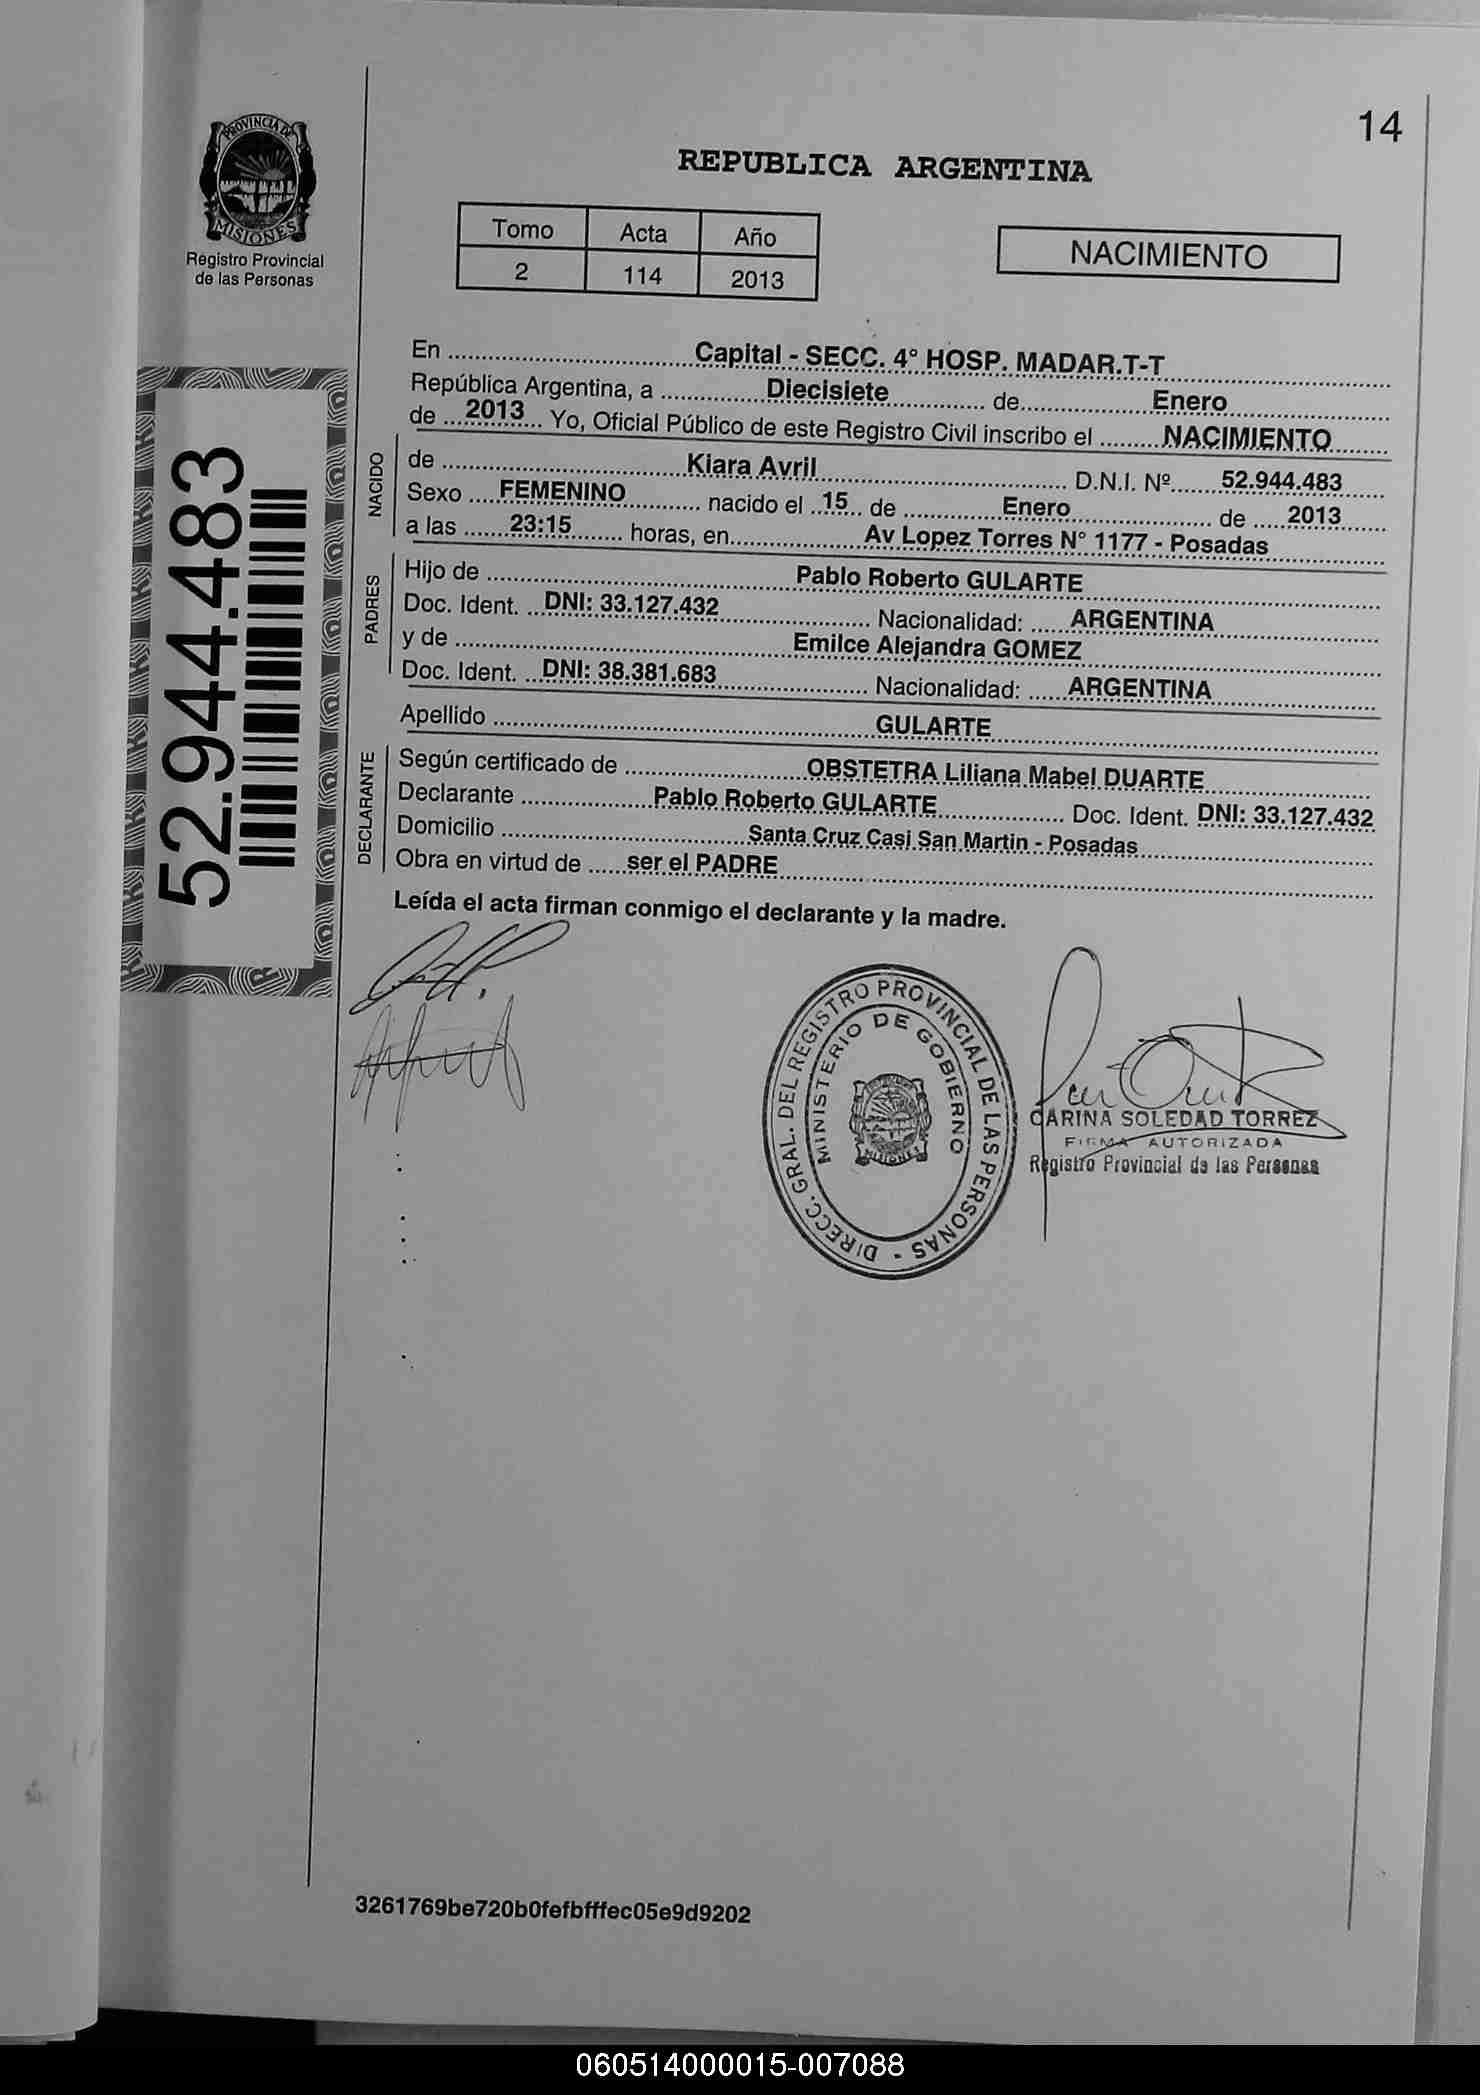 14
PROVINCIA DE
MISIONES
Registro Provincial
de las Personas
REPUBLICA ARGENTINA
Tomo Acta Año
2 114 2013
NACIMIENTO
52.944.483
En ........ Capital - SECC. 4° HOSP. MADAR.T-T ........
República Argentina, a ........ Diecisiete ........ de ........ Enero ........
de ... 2013 ... Yo, Oficial Público de este Registro Civil inscribo el ........ NACIMIENTO ........
NACIDO
de ........ Kiara Avril ........ D.N.I. Nº ...... 52.944.483 ......
Sexo .... FEMENINO ........ nacido el .. 15 .. de ........ Enero ........ de .... 2013 ......
a las ...... 23:15 ........ horas, en ........ Av Lopez Torres N° 1177 - Posadas ........
PADRES
Hijo de ........ Pablo Roberto GULARTE ........
Doc. Ident. ... DNI: 33.127.432 ........ Nacionalidad: .... ARGENTINA ........
y de ........ Emilce Alejandra GOMEZ ........
Doc. Ident. .. DNI: 38.381.683 ........ Nacionalidad: ..... ARGENTINA ........
Apellido ........ GULARTE ........
DECLARANTE
Según certificado de ........ OBSTETRA Liliana Mabel DUARTE ........
Declarante ........ Pablo Roberto GULARTE ........ Doc. Ident. DNI: 33.127.432
Domicilio ........ Santa Cruz Casi San Martin - Posadas ........
Obra en virtud de ..... ser el PADRE ........
Leída el acta firman conmigo el declarante y la madre.
DIRECC. GRAL. DEL REGISTRO PROVINCIAL DE LAS PERSONAS -
MINISTERIO DE GOBIERNO
MISIONES
CARINA SOLEDAD TORREZ
FIRMA AUTORIZADA
Registro Provincial de las Personas
3261769be720b0fefbfffec05e9d9202
060514000015-007088